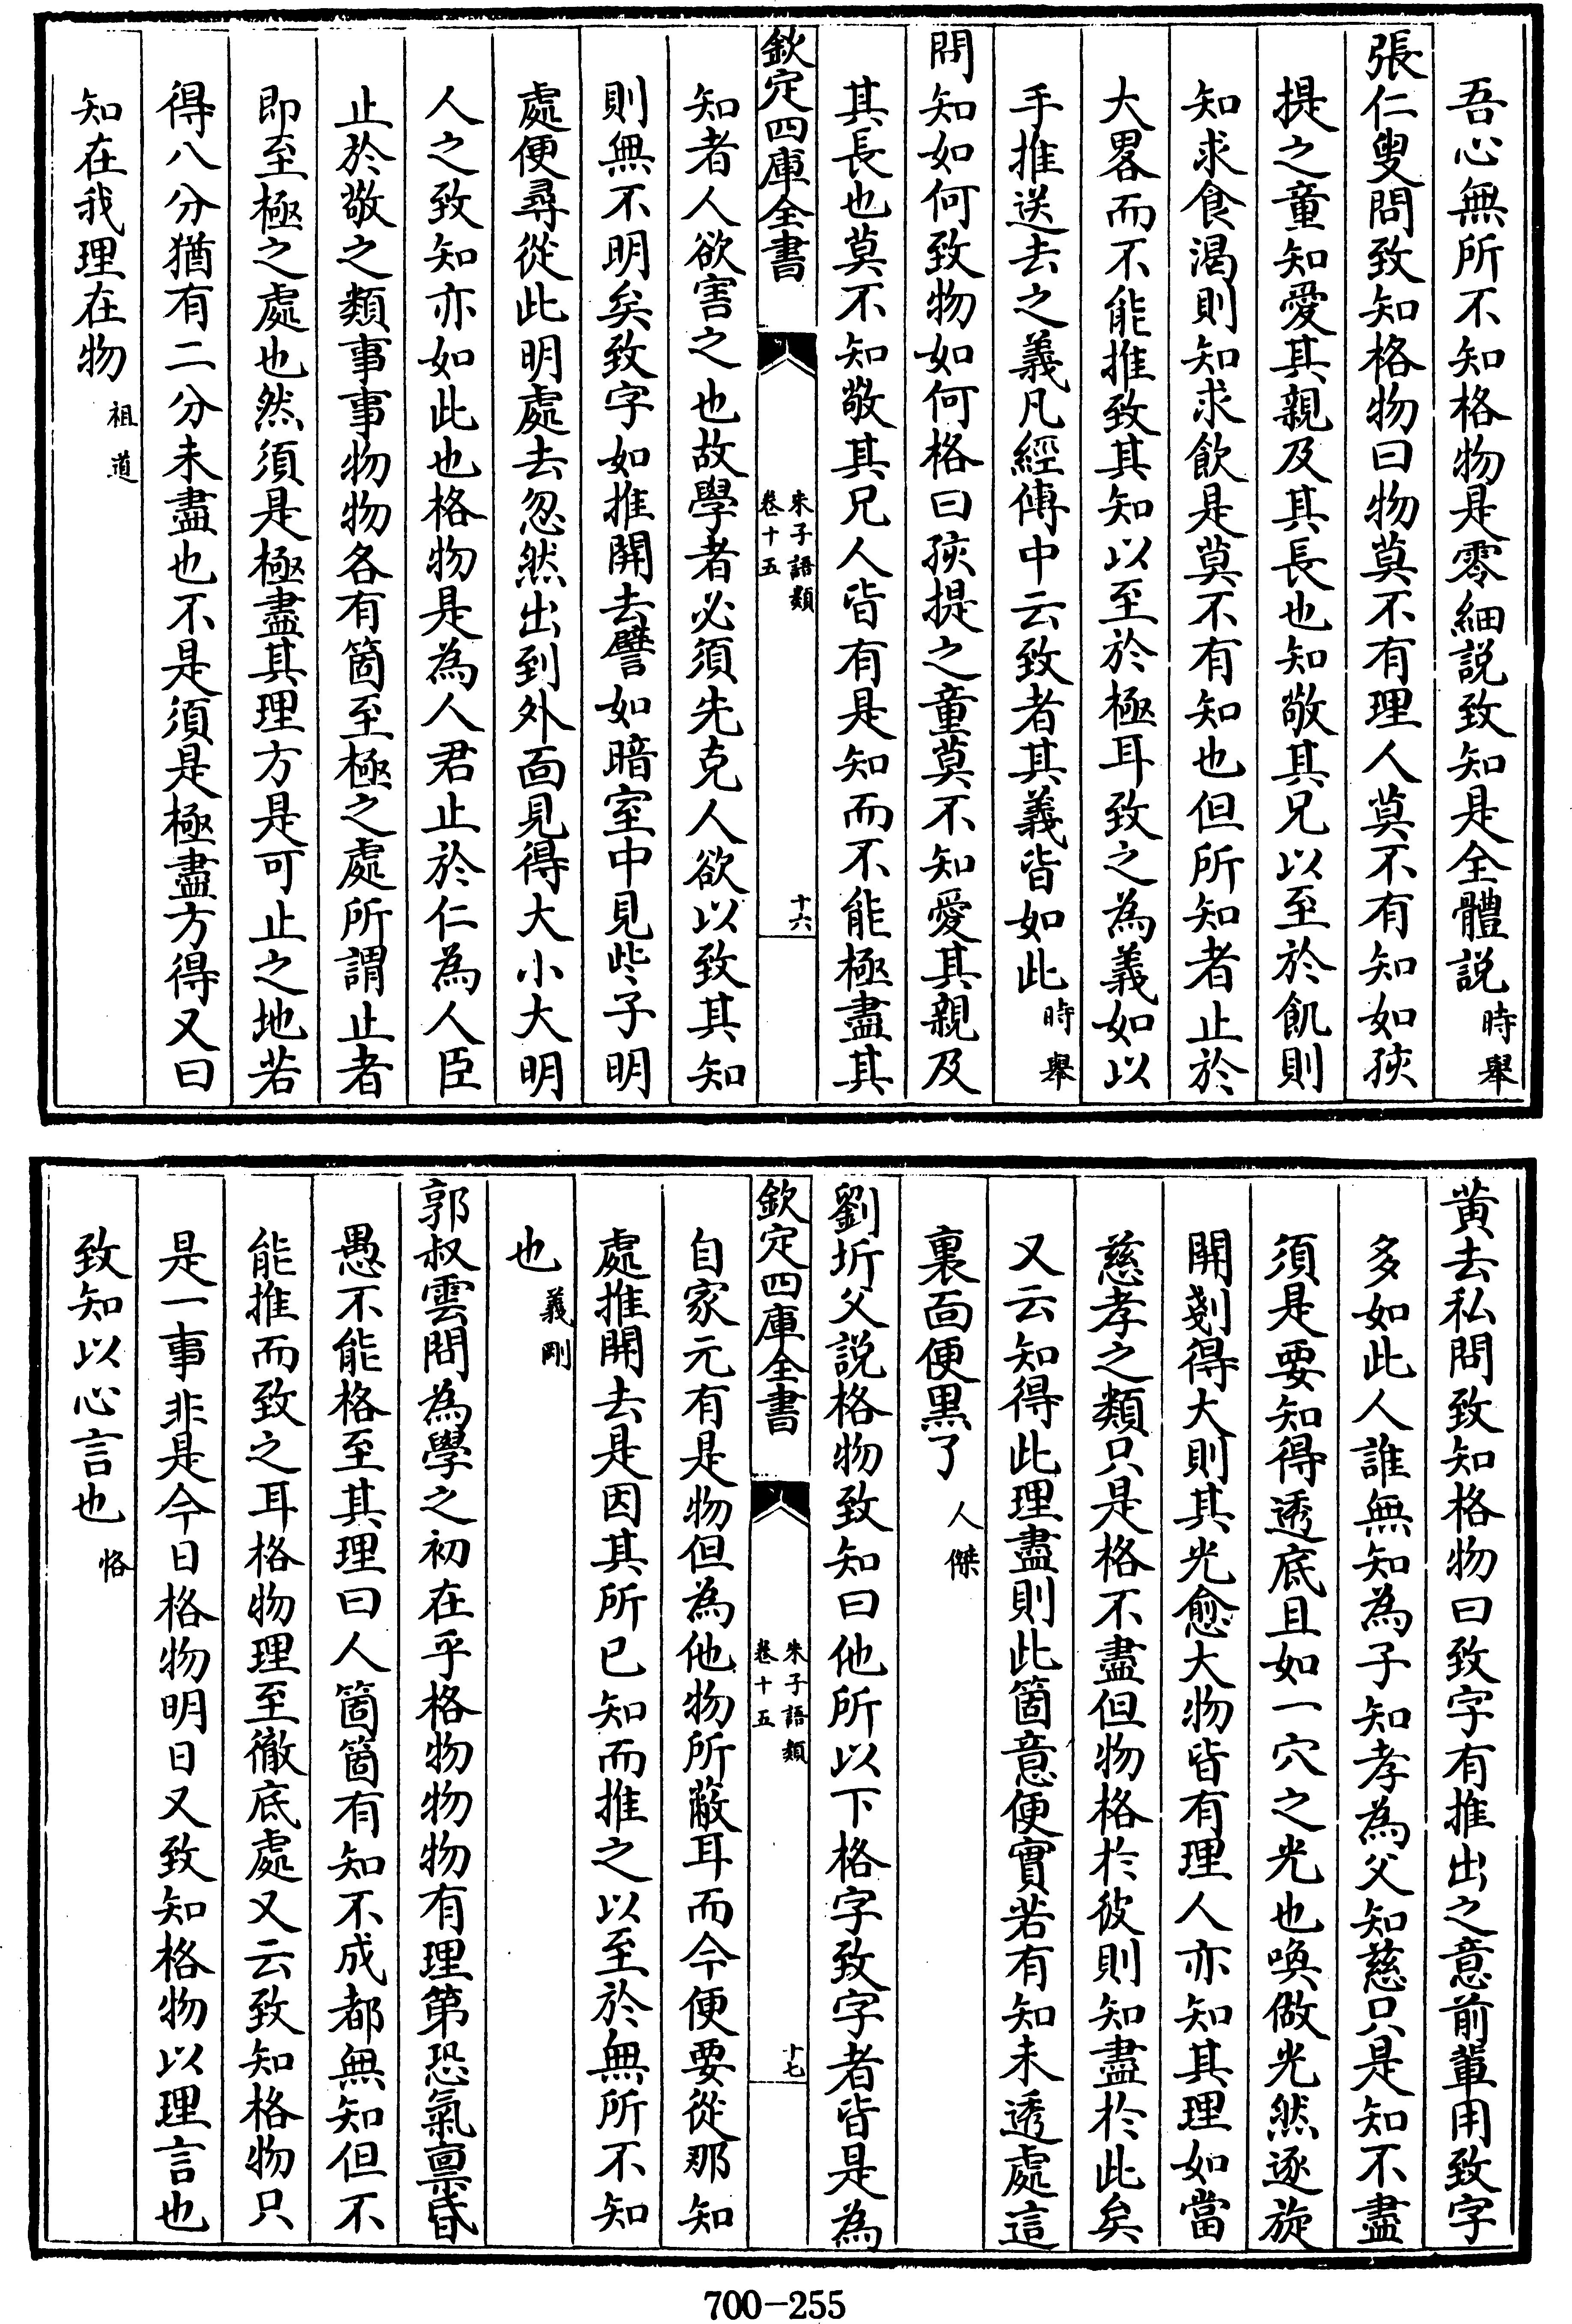 吾心無所不知格物是零細説致知是全體説時舉
張仁叟問致知格物曰物莫不有理人莫不有知如孩
提之童知愛其親及其長也知敬其兄以至於飢則
知求食渴則知求飲是莫不有知也但所知者止於
大畧而不能推致其知以至於極耳致之為義如以
手推送去之義凡經傳中云致者其義皆如此時舉
問知如何致物如何格曰孩提之童莫不知愛其親及
其長也莫不知敬其兄人皆有是知而不能極盡其
欽定四庫全書
朱子語類
卷十五
十六
知者人欲害之也故學者必須先克人欲以致其知
則無不明矣致字如推開去譬如暗室中見些子明
處便尋從此明處去忽然出到外面見得大小大明
人之致知亦如此也格物是為人君止於仁為人臣
止於敬之類事事物物各有箇至極之處所謂止者
即至極之處也然須是極盡其理方是可止之地若
得八分猶有二分未盡也不是須是極盡方得又曰
知在我理在物祖道
黄去私問致知格物曰致字有推出之意前輩用致字
多如此人誰無知為子知孝為父知慈只是知不盡
須是要知得透底且如一穴之光也喚做光然逐旋
開剗得大則其光愈大物皆有理人亦知其理如當
慈孝之類只是格不盡但物格於彼則知盡於此矣
又云知得此理盡則此箇意便實若有知未透處這
裏面便黑了人傑
劉圻父説格物致知曰他所以下格字致字者皆是為
欽定四庫全書
朱子語類
卷十五
十七
自家元有是物但為他物所蔽耳而今便要從那知
處推開去是因其所已知而推之以至於無所不知
也義剛
郭叔雲問為學之初在乎格物物物有理第恐氣禀昏
愚不能格至其理曰人箇箇有知不成都無知但不
能推而致之耳格物理至徹底處又云致知格物只
是一事非是今日格物明日又致知格物以理言也
致知以心言也恪
700-255